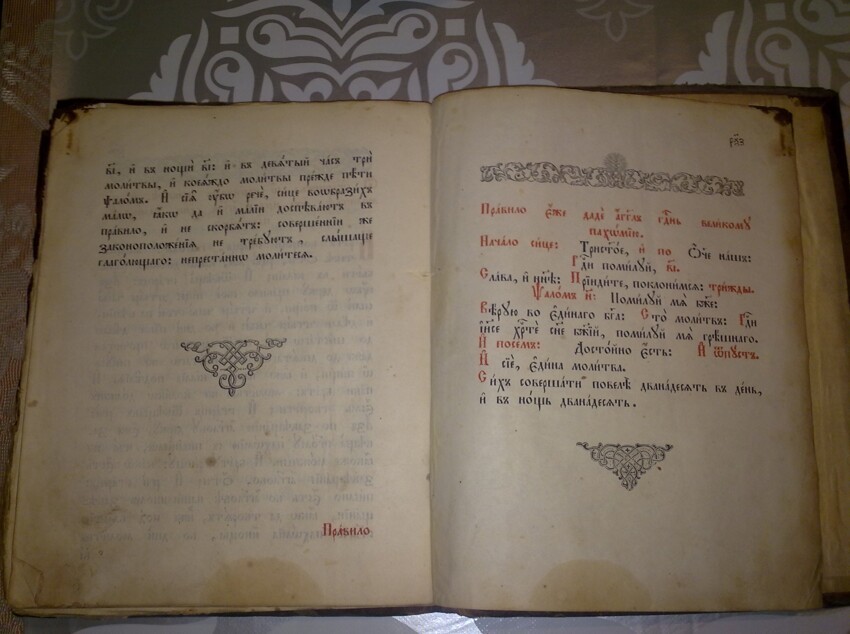 в҃і, и҆ въ нощи в҃і: и҆ въ девѧ́тый ча́съ трѝ
моли́твы, и҆ коемꙋ́ждо моли́твы пре́жде пѣ́ти
ѱало́мъ. И҆ сїѧ̑ ᲂу҆́бѡ рече́, си́це воѡбрази́хъ
ма́лѡ, ꙗ҆́кѡ да и҆ ма́лїи доспѣва́ютъ въ
пра́вило, и҆ не скорбѧ́тъ: соверше́ннїи же
законоположе́нїѧ не тре́бꙋютъ, слы́шаще
глаго́лющаго: непреста́ннѡ моли́тесѧ.
Пра́вило
Пра́вило є҆́же дадѐ а҆́гг҃лъ гдⷭ҇нь вели́комꙋ
пахо́мїю.
Нача́ло си́це: Трист҃о́е, и҆ по Ѻ҆́ч҃е на́шъ:
Гдⷭ҇и поми́лꙋй, в҃і.
Сла́ва, и҆ ны́нѣ: Прїиди́те, поклони́мсѧ: три́жды.
Ѱало́мъ н҃: Поми́лꙋй мѧ̀ бж҃е:
Вѣ́рꙋю во є҆ди́наго бг҃а: С҃то̀ моли́твъ: Гдⷭ҇и
і҆и҃се хрⷭ҇тѐ сн҃е бж҃їй, поми́лꙋй мѧ̀ грѣ́шнаго.
И҆ посе́мъ: Досто́йно є҆́сть: И҆ ѿпꙋ́стъ.
И҆ сїѐ, є҆ди́на моли́тва.
Си́хъ соверша́ти повелѣ̀ двана́десѧть въ де́нь,
и҆ въ но́щь двана́десѧть.